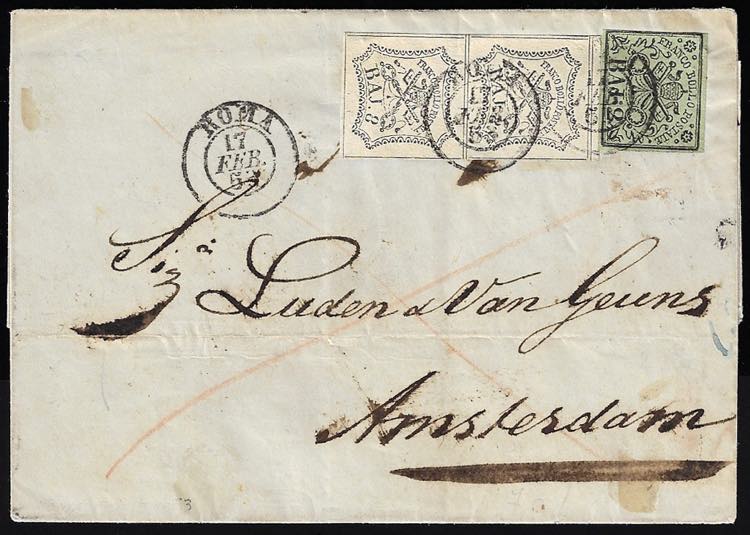 FRANCO BOLLO
BAJ 8
FRANCO BOLLO
BAJ 8
FRANCO BOLLO POSTALE
BAJ 2
ROMA
17
FEB.
ROMA
Luden & Van Geuns
Amsterdam